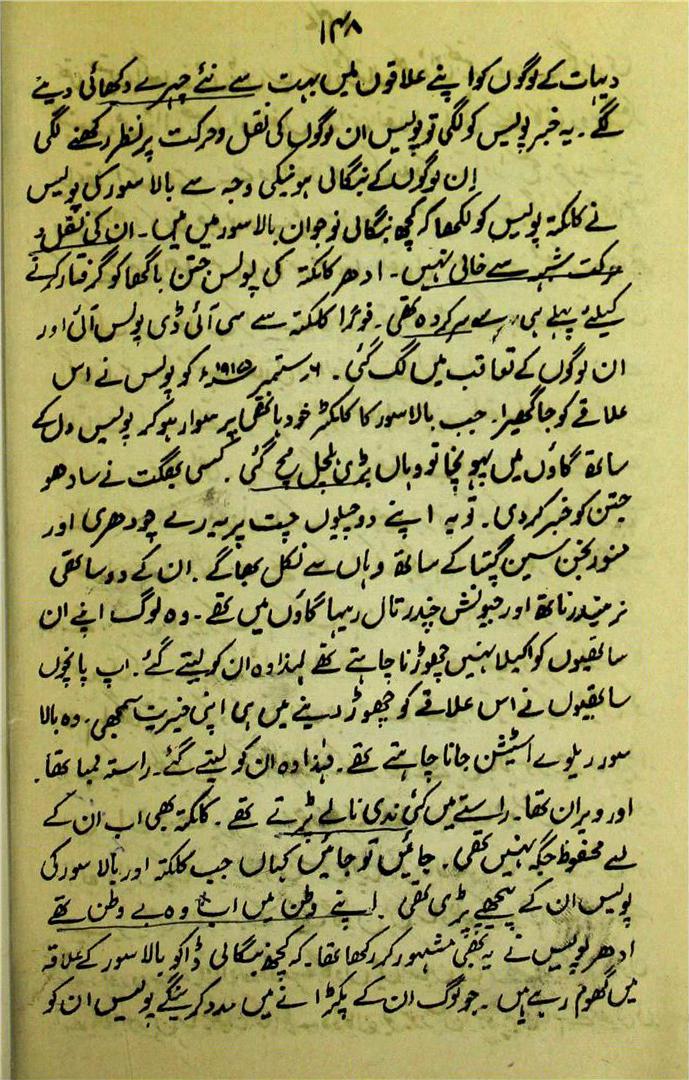 ۱۴۸
دیہات کے لوگوں کو اپنے علاقوں میں بہت سے نئے چہرے دکھائی دینے
لگے۔ یہ خبر پولیس کو لگی تو پولیس ان لوگوں کی نقل و حرکت پر نظر رکھنے لگی
ان لوگوں کے بنگالی ہونیکی وجہ سے بالاسور کی پولیس
نے کلکتہ پولیس کو لکھا کہ کچھ بنگالی نوجوان بالاسور میں ہیں۔ ان کی نقل و
حرکت شبہ سے خالی نہیں۔ ادھر کلکتہ کی پولس جتن باگھا کو گرفتار کرنے
کیلئے پہلے ہی سے سرکردہ تھی۔ فوراً کلکتہ سے سی آئی ڈی پولس آئی اور
ان لوگوں کے تعاقب میں لگ گئی۔ ۶ ستمبر ۱۹۱۵ء کو پولس نے اس
علاقے کو جا گھیرا۔ جب بالاسور کا کلکٹر خود ہاتھی پر سوار ہو کر پولیس دل کے
ساتھ گاؤں میں پہونچا تو وہاں بڑی ہلچل مچ گئی۔ کسی بھگت نے سادھو
جتن کو خبر کر دی۔ تو یہ اپنے دو چیلوں چت پریہ رے چودھری اور
منورنجن سین گپتا کے ساتھ وہاں سے نکل بھاگے۔ ان کے دو ساتھی
نریندر ناتھ اور جیوتش چندر تال ریہا گاؤں میں تھے۔ وہ لوگ اپنے ان
ساتھیوں کو اکیلا نہیں چھوڑنا چاہتے تھے لہذا وہ ان کو لیتے گئے۔ اب پانچوں
ساتھیوں نے اس علاقے کو چھوڑ دینے میں ہی اپنی خیریت سمجھی۔ وہ بالا
سور ریلوے اسٹیشن جانا چاہتے تھے۔ لہذا وہ ان کو لیتے گئے۔ راستہ لمبا تھا۔
اور ویران تھا۔ راستے میں کئی ندی نالے پڑتے تھے۔ کلکتہ بھی اب ان کے
لے محفوظ جگہ نہیں تھی۔ جائیں تو جائیں کہاں جب کلکتہ اور بالاسور کی
پولیس ان کے پیچھے پڑی تھی۔ اپنے وطن میں اب وہ بے وطن تھے
ادھر پولیس نے یہ بھی مشہور کر رکھا تھا۔ کہ کچھ بنگالی ڈاکو بالاسور کے علاقہ
میں گھوم رہے ہیں۔ جو لوگ ان کے پکڑانے میں مدد کرینگے پولیس ان کو